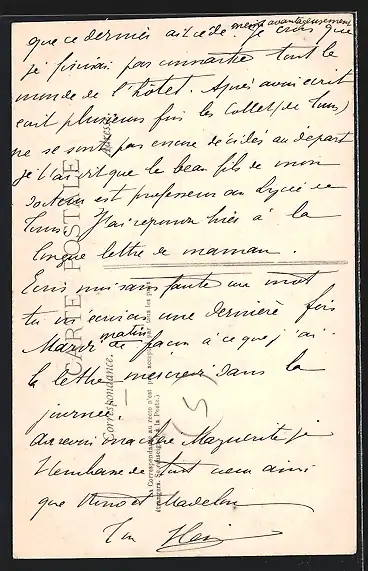 que ce dernier ait cédé moins avantageusement. Je crois que
je finirai par connaître tout le
monde de l'hôtel. Après avoir écrit
écrit plusieurs fois les Collet (de Tours)
ne se sont pas encore décidés au départ
je t'ai dit que le beau fils de mon
docteur est professeur au Lycée de
Tours. J'ai répondu hier à la
longue lettre de maman.
Ecris moi sans faute un mot
tu m'écriras une dernière fois
Mardi matin de façon à ce que j'ai
la lettre mercredi dans la
journée.
Au revoir ma chère Marguerite je
t'embrasse de tout cœur ainsi
que et Madelon
Ton
CARTE POSTALE
Adresse
Correspondance.
La Correspondance au recto n'est pas acceptée par tous les pays
étrangers. (Se renseigner à la Poste.)
(5)